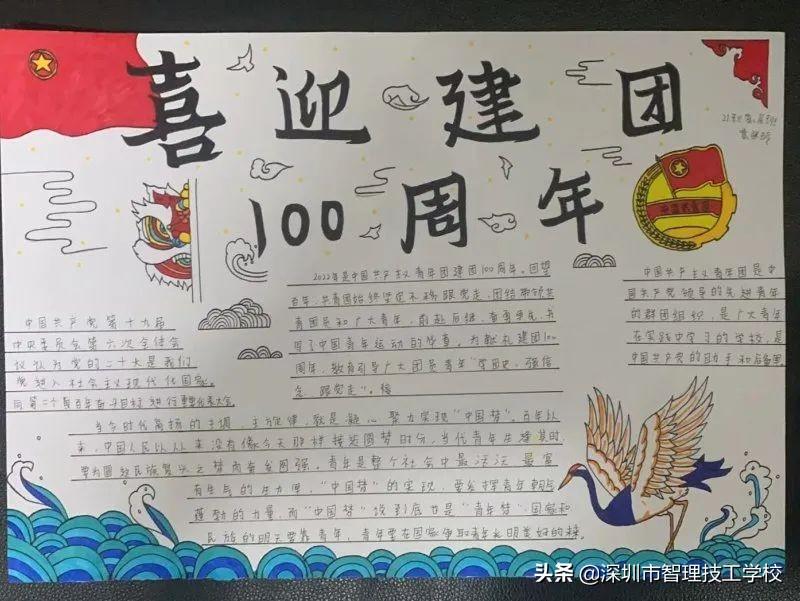 喜迎建团
100周年
2022年是中国共产主义青年团建团100周年。回望
百年,共青团始终坚定不移跟党走,团结带领共
青团员和广大青年,前赴后继、奋勇争先,书
写了中国青年运动的华章。为献礼建团100
周年,教育引导广大团员青年"学历史、强信
念、跟党走"。
中国共产主义青年团是中
国共产党领导的先进青年
的群团组织,是广大青年
在实践中学习的学校,是
中国共产党的助手和后备军
中国共产党第十九届
中央委员会第六次全体会
议认为党的二十大是我们
党进入社会主义现代化国家。
向第二个百年奋斗目标进行重要代表大会
当今时代高扬的主调,主旋律,就是凝心聚力实现"中国梦"。百年以
来,中国人民从从来没有像今天那样接近圆梦时分,当代青年生逢其时,
要为国家民族复兴之梦而奋发图强。青年是整个社会中最活泛、最富
有生气的生力军,"中国梦"的实现,要发挥青年朝气
蓬勃的力量,而"中国梦"说到底也是"青年梦",国家和
民族的明天要靠青年,青年要在国家争取青年长明美好的
头条@深圳市智理技工学校